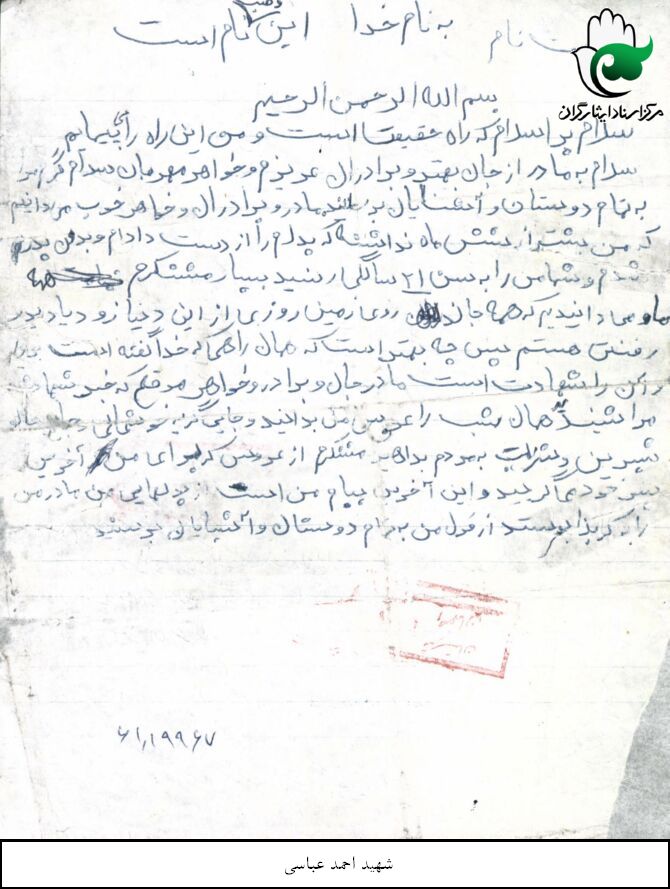 به نام خدا این وصیت نام است
نام
مرکز اسناد ایثارگران
بسم الله الرحمن الرحیم
سلام بر اسلام که راه حقیقت است و من این راه را پیمایم
سلام به مادر از جان بهتر و برادران عزیزم و خواهر مهربان سلام گرم مرا
به تمام دوستان و آشنایان مادر و برادران و خواهر خوب من دانیم
که من بیشتر از شش ماه نداشته که پدرم را از دست دادم و بدون پدر
شدم و شما من را به سن ۲۱ سالگی رسنید بسیار متشکرم
همه جانداران روی زمین روزی از این دنیا زود یا دیر
رفتنی هستم پس چه بهتر است که همان راهی که خدا گفته است
و آن را شهادت است مادر جان و برادر و خواهر موقعی که خبر شهادت
مرا شنیدید همان شب را عروسی من بدانید و جایی گریه خوشحالی و جای
شیرین و شربت به مردم بداهید متشکرم از عروسی که برای من آخرین
پسر خود می گیرید و این آخرین پیام من است من مادر من
را به کربلا از قول من به تمام دوستان و آشنایان
۶۱,۱۹۹۶۷
شهید احمد عباسی